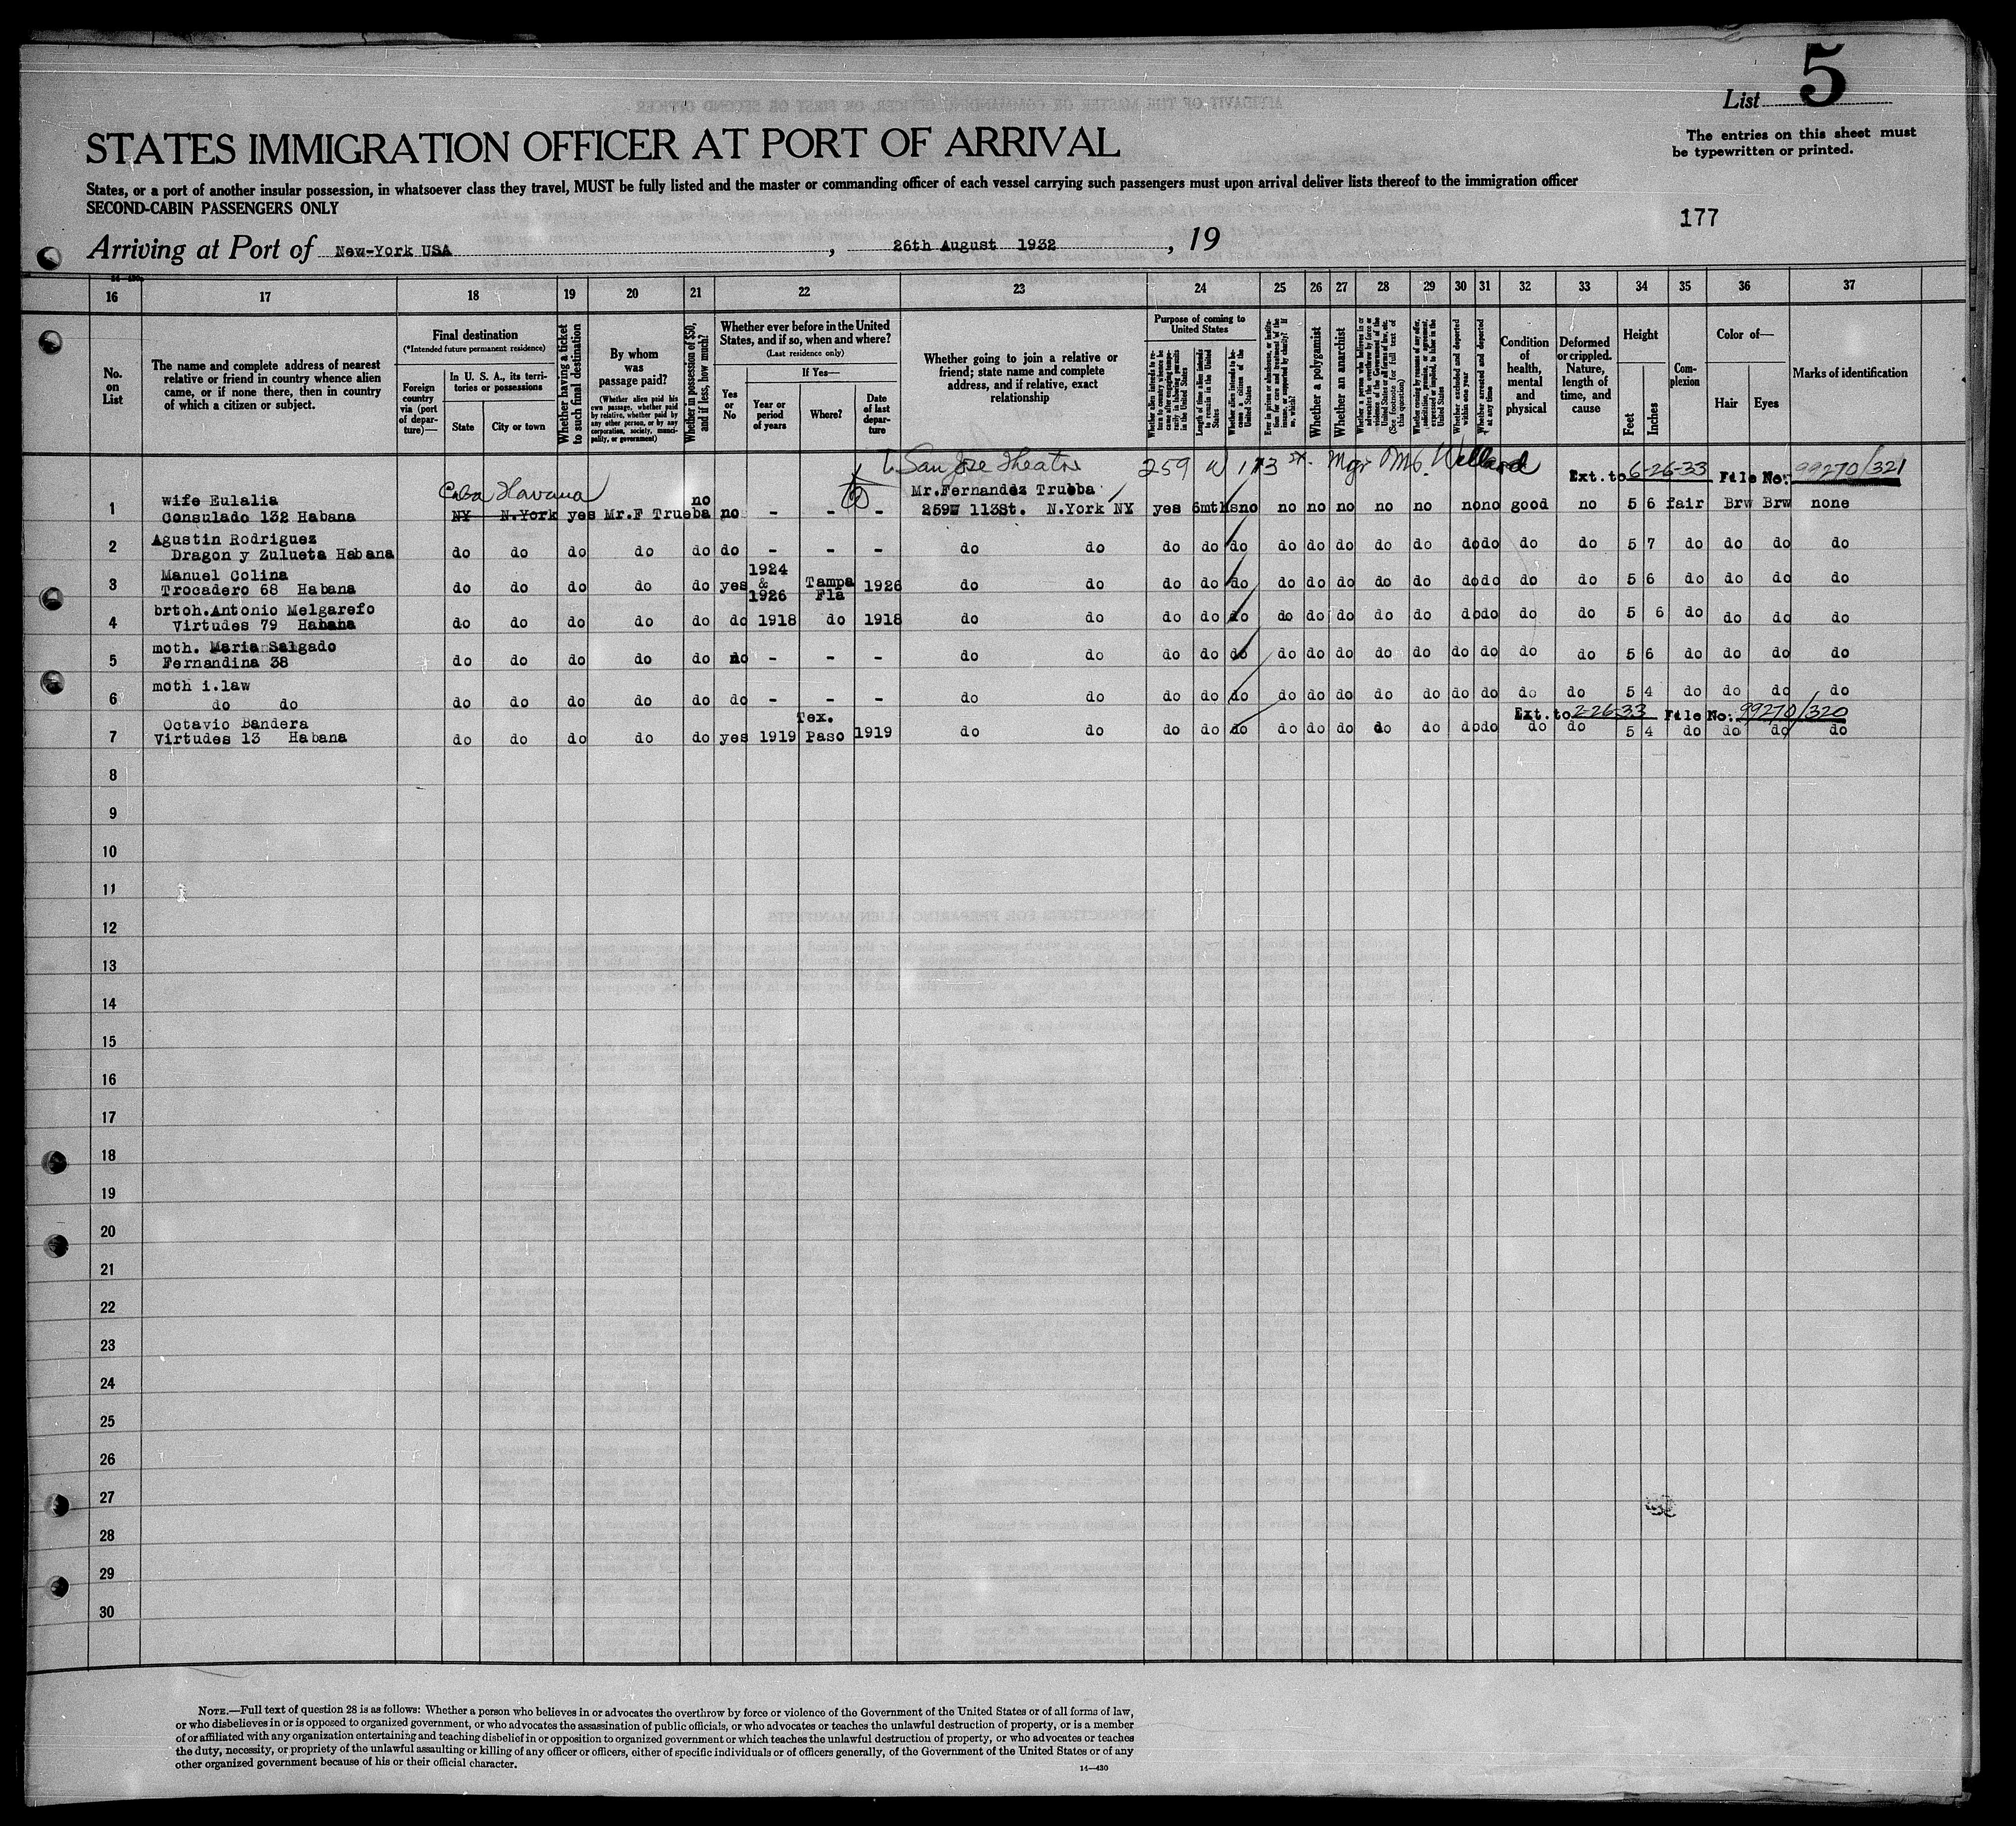 List 5
The entries on this sheet must
be typewritten or printed.
STATES IMMIGRATION OFFICER AT PORT OF ARRIVAL
States, or a port of another insular possession, in whatsoever class they travel, MUST be fully listed and the master or commanding officer of each vessel carrying such passengers must upon arrival deliver lists thereof to the immigration officer
SECOND-CABIN PASSENGERS ONLY
177
Arriving at Port of New-York USA, 26th August 1932, 19
16 17 18 19 20 21 22 23 24 25 26 27 28 29 30 31 32 33 34 35 36 37
No. on List
The name and complete address of nearest relative or friend in country whence alien came, or if none there, then in country of which a citizen or subject.
Final destination
(*Intended future permanent residence)
Foreign country via (port of departure)—
In U. S. A., its territories or possessions
State
City or town
Whether having a ticket to such final destination
By whom was passage paid?
(Whether alien paid his own passage, whether paid by relative, whether paid by any other person, or by any corporation, society, municipality, or government)
Whether in possession of $50, and if less, how much?
Whether ever before in the United States, and if so, when and where?
(Last residence only)
Yes or No
If Yes—
Year or period of years
Where?
Date of last departure
Whether going to join a relative or friend; state name and complete address, and if relative, exact relationship
Purpose of coming to United States
Whether alien intends to return to country whence he came after engaging temporarily in laboring pursuits in the United States
Length of time alien intends to remain in the United States
Whether alien intends to become a citizen of the United States
Ever in prison or almshouse, or institution for care and treatment of the insane, or supported by charity? If so, which?
Whether a polygamist
Whether an anarchist
Whether a person who believes in or advocates the overthrow by force or violence of the Government of the United States or all forms of law, etc. (See footnote for full text of this question)
Whether coming by reason of any offer, solicitation, promise, or agreement, expressed or implied, to labor in the United States
Whether excluded and deported within one year
Whether arrested and deported at any time
Condition of health, mental and physical
Deformed or crippled. Nature, length of time, and cause
Height
Feet
Inches
Complexion
Color of—
Hair
Eyes
Marks of identification
San Jose Theatre 259 W 113 st. Mgr Willard Ext. to 6-26-33 File No. 99270/321
Cuba Havana
1 wife Eulalia no Mr.Fernandez Trueba
Consulado 132 Habana NY N.York yes Mr.F Trueba no - - - 259W 113St. N.York NY yes 6mths no no no no no no no no good no 5 6 fair Brw Brw none
2 Agustin Rodriguez
Dragon y Zulueta Habana do do do do do do - - - do do do do do do do do do do do do do do 5 7 do do do do
3 Manuel Colina 1924
Trocadero 68 Habana do do do do do yes & 1926 Tampa Fla 1926 do do do do do do do do do do do do do do 5 6 do do do do
4 brtoh.Antonio Melgarefo
Virtudes 79 Habana do do do do do do 1918 do 1918 do do do do do do do do do do do do do do 5 6 do do do do
5 moth. Maria Salgado
Fernandina 38 do do do do do no - - - do do do do do do do do do do do do do do 5 6 do do do do
6 moth i.law
do do do do do do do do - - - do do do do do do do do do do do do do do 5 4 do do do do
Ext. to 2-26-33 File No. 99270/320
7 Octavio Bandera Tex.
Virtudes 13 Habana do do do do do yes 1919 Paso 1919 do do do do do do do do do do do do do do 5 4 do do do do
8
9
10
11
12
13
14
15
16
17
18
19
20
21
22
23
24
25
26
27
28
29
30
NOTE.—Full text of question 28 is as follows: Whether a person who believes in or advocates the overthrow by force or violence of the Government of the United States or of all forms of law,
or who disbelieves in or is opposed to organized government, or who advocates the assassination of public officials, or who advocates or teaches the unlawful destruction of property, or is a member
of or affiliated with any organization entertaining and teaching disbelief in or opposition to organized government or which teaches the unlawful destruction of property, or who advocates or teaches
the duty, necessity, or propriety of the unlawful assaulting or killing of any officer or officers, either of specific individuals or of officers generally, of the Government of the United States or of any
other organized government because of his or their official character.
14—430